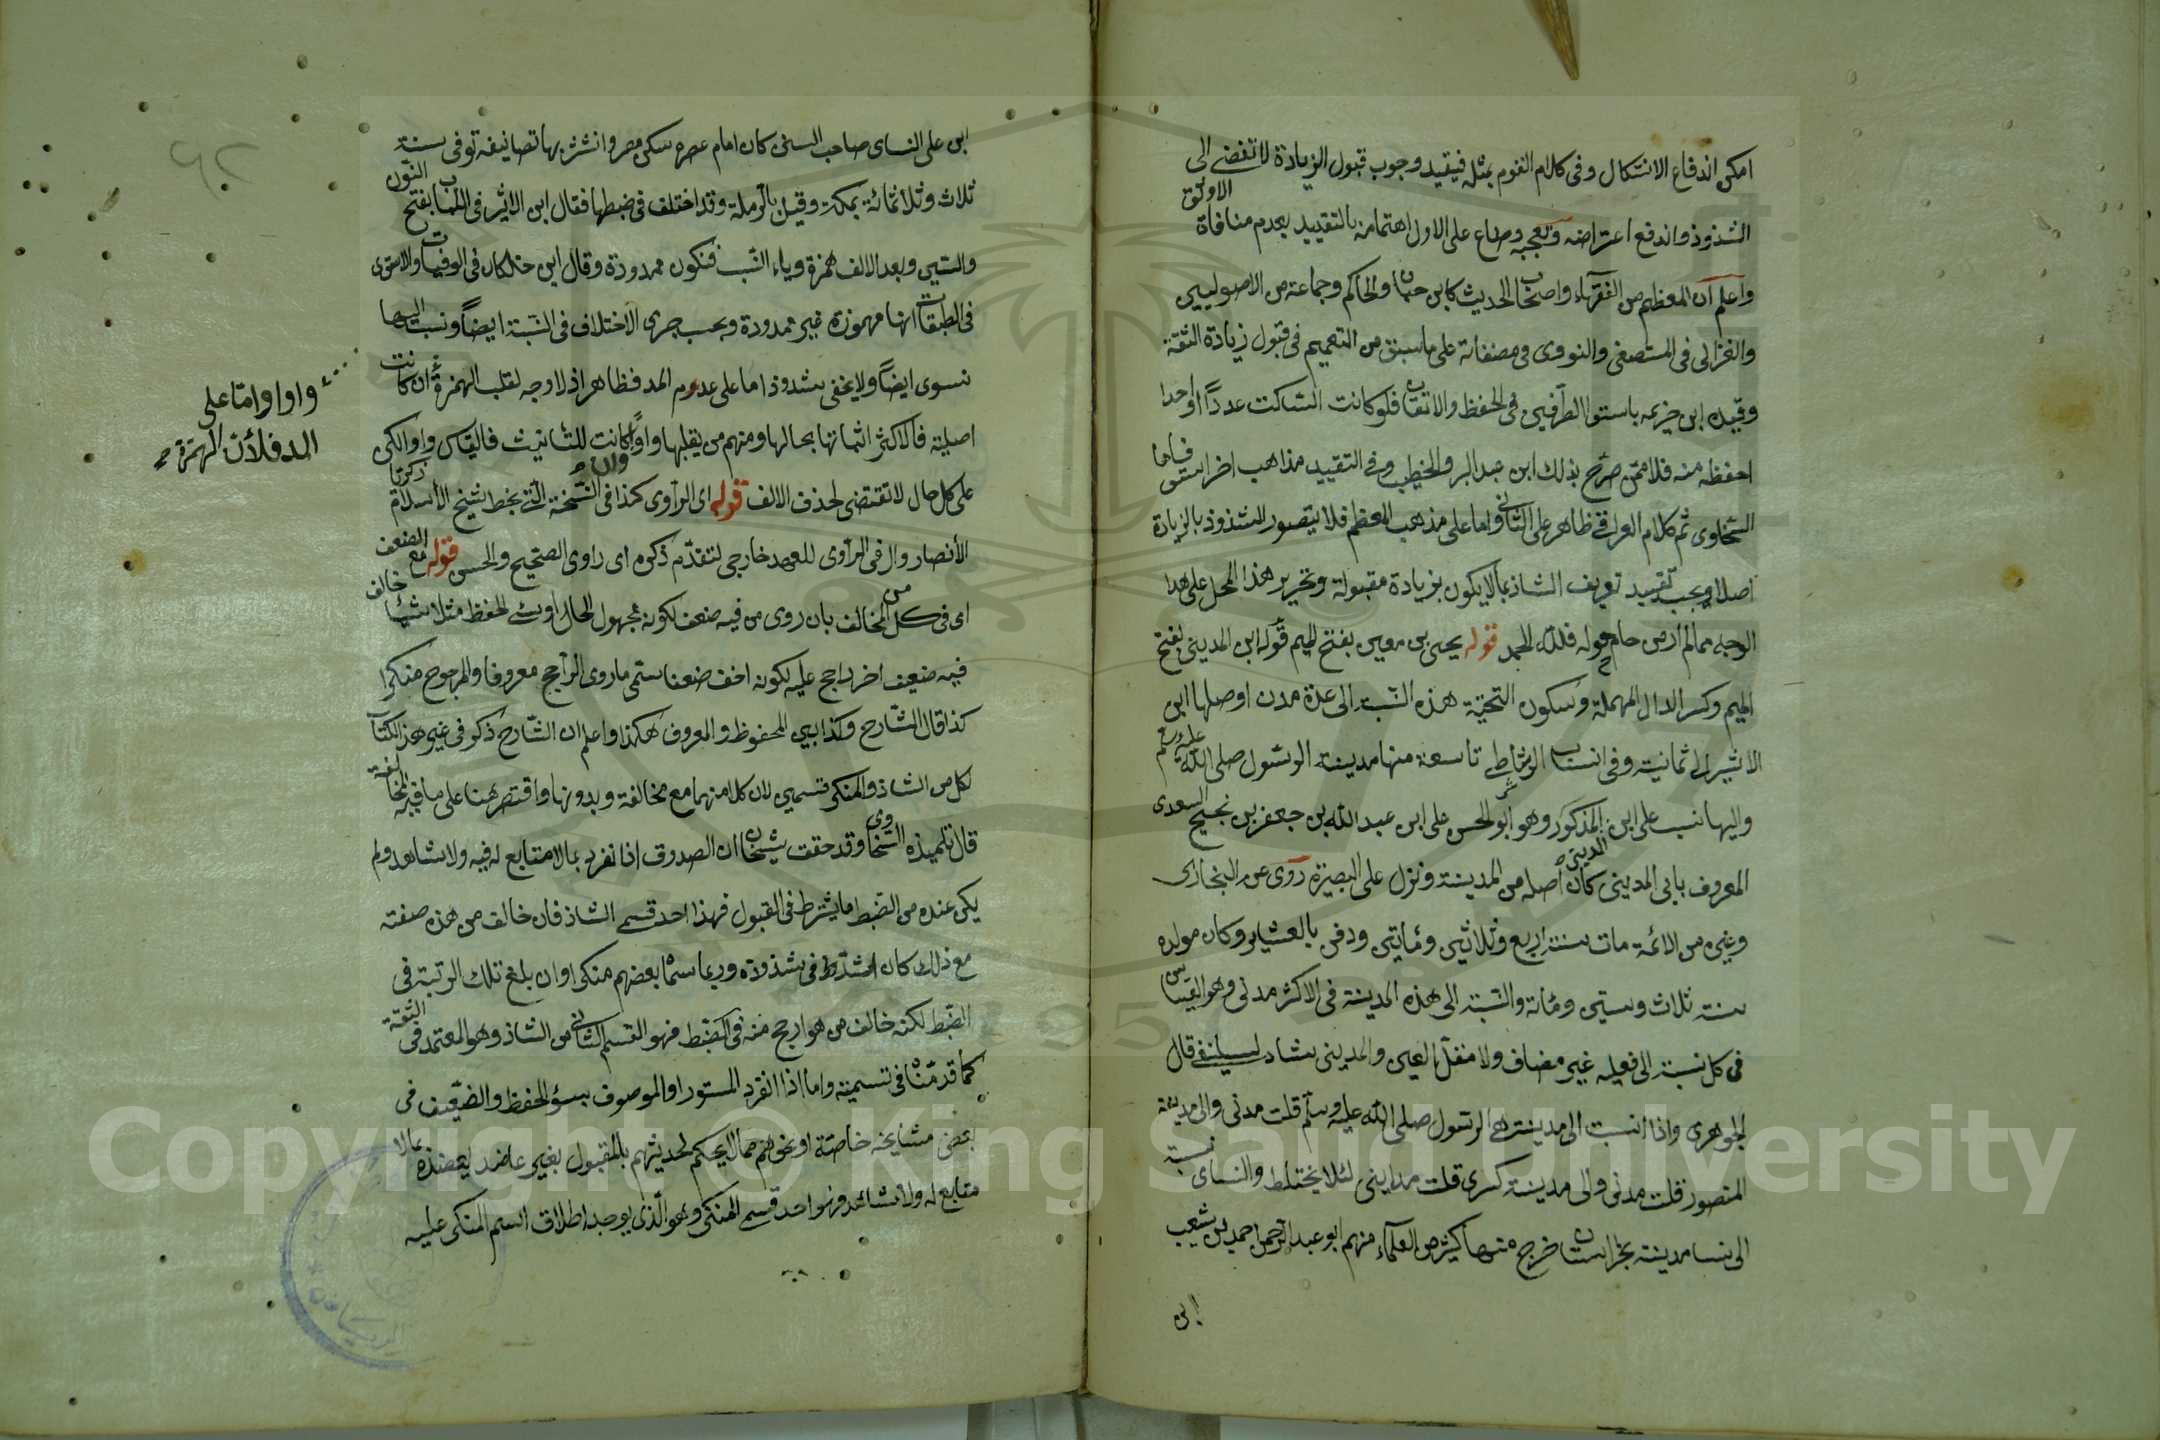 امكن اندفاع الاشكال وفى كلام القوم بمثله فيقيد وجوب قبول الزيادة لا تفضى الى
الشذوذ واندفع اعتراضه وتعجبه وصاع على الاول اهتمامه بالتقييد بعدم منافاة الاوثق
واعلم ان المعظم من الفقهاء واصحاب الحديث كابن حبان والحاكم وجماعة من الاصوليين
والغزالى فى المستصفى والنووى فى مصنفاته على ما سبق من التعميم فى قبول زيادة الثقة
وقيده ابن خزيمه باستوا الطرفين فى الحفظ والاتقان فلو كانت الساكت عدداً او واحدا
احفظ منه فلا ممن صرح بذلك ابن عبد البر والخطيب وفى التقييد مذاهب اخر استوفاها
السخاوى ثم كلام العراقى ظاهر على الثانى واما على مذهب المعظم فلا يتصور الشذوذ بالزيادة
اصلا ويجب تقييد تعريف الشاذ بما لا يكون بزيادة مقبولة وتحرير هذا المحل على هذا
الوجه مما لم ار من حام حوله فلله الحمد قوله يحيى بن معين بفتح الميم قوله ابن المدينى بفتح
الميم وكسر الدال المهملة وسكون التحتية هذه النسبة الى عدة مدن اوصلها ابن
الاثير الى ثمانية وفى انساب الرشاطى تاسعة منها مدينة الرسول صلى الله عليه وسلم
واليها نسب على ابن المذكور وهو ابو الحسن على ابن عبد الله بن جعفر بن نجيح السعدى
المعروف بابى المدينى كان اصله من المدينة ونزل على البصرة روى عنه البخارى
وغيره من الائمة مات سنة اربع وثلاثين ومأتين ودفن بالعسكر وكان مولده
سنة ثلاث وستين ومائة والنسبة الى هذه المدينة فى الاكثر مدنى وهو القياس
فى كل نسبة الى فعيله غير مضاف ولا معتل العين والمدينى شاذ قال
الجوهرى واذا انسبت الى مدينة الرسول صلى الله عليه وسلم قلت مدنى والى مدينة
المنصور قلت مدنى والى مدينة كسرى قلت مداينى لئلا يختلط والنساى نسبة
الى نسا مدينة بخراسان خرج منها كثير من العلماء منهم ابو عبد الرحمن احمد بن شعيب
ابن على النساى صاحب السنن كان امام عصره سكن مصر وانتشر بها تصانيفه توفى سنة
ثلاث وثلاثمائة بمكة وقيل بالرملة وقد اختلف فى ضبطها فقال ابن الاثير فى اللباب بفتح النون
والسين وبعد الالف همزة وياء النسب فتكون ممدودة وقال ابن خلكان فى الوفيات والاسنوى
فى الطبقات انها مهموزة غير ممدودة ويجب جرى الاختلاف فى النسبة ايضاً ونسبت اليها
نسوى ايضاً ولا يخفى شذوذ اما على عدم المد فظاهر اذ لا وجه لقلب الهمزة ان كانت
واوا واما على
المد فلأن الهمزة
اصلية فالاكثر اثباتها بحالها ومنهم من يقلبها واواً وان كانت للتأنيث فالقياس واو الكن
على كل حال لا تقتضى لحذف الالف قوله اى الراوى كذا فى النسخة التى بخط شيخ الاسلام زكريا
الأنصار وال فى الراوى للعهد خارجى لتقدم ذكره اى راوى الصحيح والحسن قوله مع الضعف
اى فى كل من المخالف بان روى من فيه ضعف لكونه مجهول الحال او سئ الحفظ مثلا شيأ خالف
فيه ضعيف اخر راجح عليه لكونه اخف ضعفا سمى ما روى الراجح معروفا والمرجوح منكرا
كذا قال الشارح وكذا بين المحفوظ والمعروف هكذا واعلم ان الشارح ذكر فى غير هذا الكتاب
لكل من الشاذ والمنكر قسمين لان كلا منهما مع مخالفة وبدونها واقتصر هنا على ما فيه المخالفة
قال تلميذه السخاوى وقد حقق شيخنا ان الصدوق اذا تفرد بما لا متابع له فيه ولا شاهد ولم
يكن عنده من الضبط ما يشترط فى القبول فهذا احد قسمى الشاذ فان خالف من هذه صفته
مع ذلك كان اشد فى شذوذه وربما سماه بعضهم منكرا وان بلغ تلك الرتبة فى
الضبط لكنه خالف من هو ارجح منه فى الضبط فهو القسم الثانى من الشاذ وهو المعتمد فى الثقة
كما قدمناه فى تسميته واما اذا انفرد المستور او الموصوف بسؤ الحفظ والضعيف فى
بعض مشايخه خاصة او نحوهم مما لا يحكم لحديثهم بالمقبول بغير عاضد يعضده بما لا
متابع له ولا شاهد فهو احد قسمى المنكر وهو الذى يوجد اطلاق اسم المنكر عليه
Copyright © King Saud University